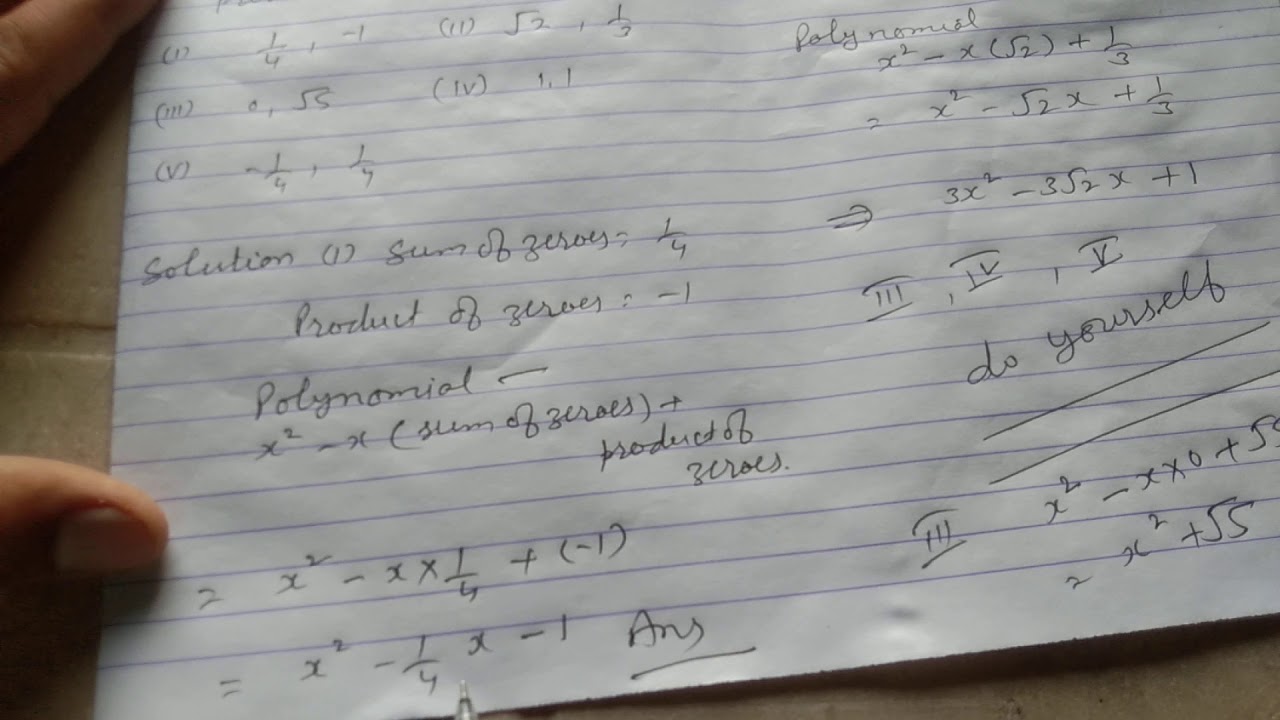 (I) 1/4, -1 (II) √2, 1/3
(III) 0, √5 (IV) 1,1
(V) -1/4, 1/4
Solution (I) Sum of zeroes = 1/4
Product of zeroes = -1
Polynomial –
x² - x (sum of zeroes) +
product of
zeroes.
= x² - x × 1/4 + (-1)
= x² - 1/4 x - 1 Ans
Polynomial
x² - x(√2) + 1/3
= x² - √2 x + 1/3
⇒ 3x² - 3√2 x + 1
III, IV, V
do yourself
III x² - x×0 + √5
= x² + √5